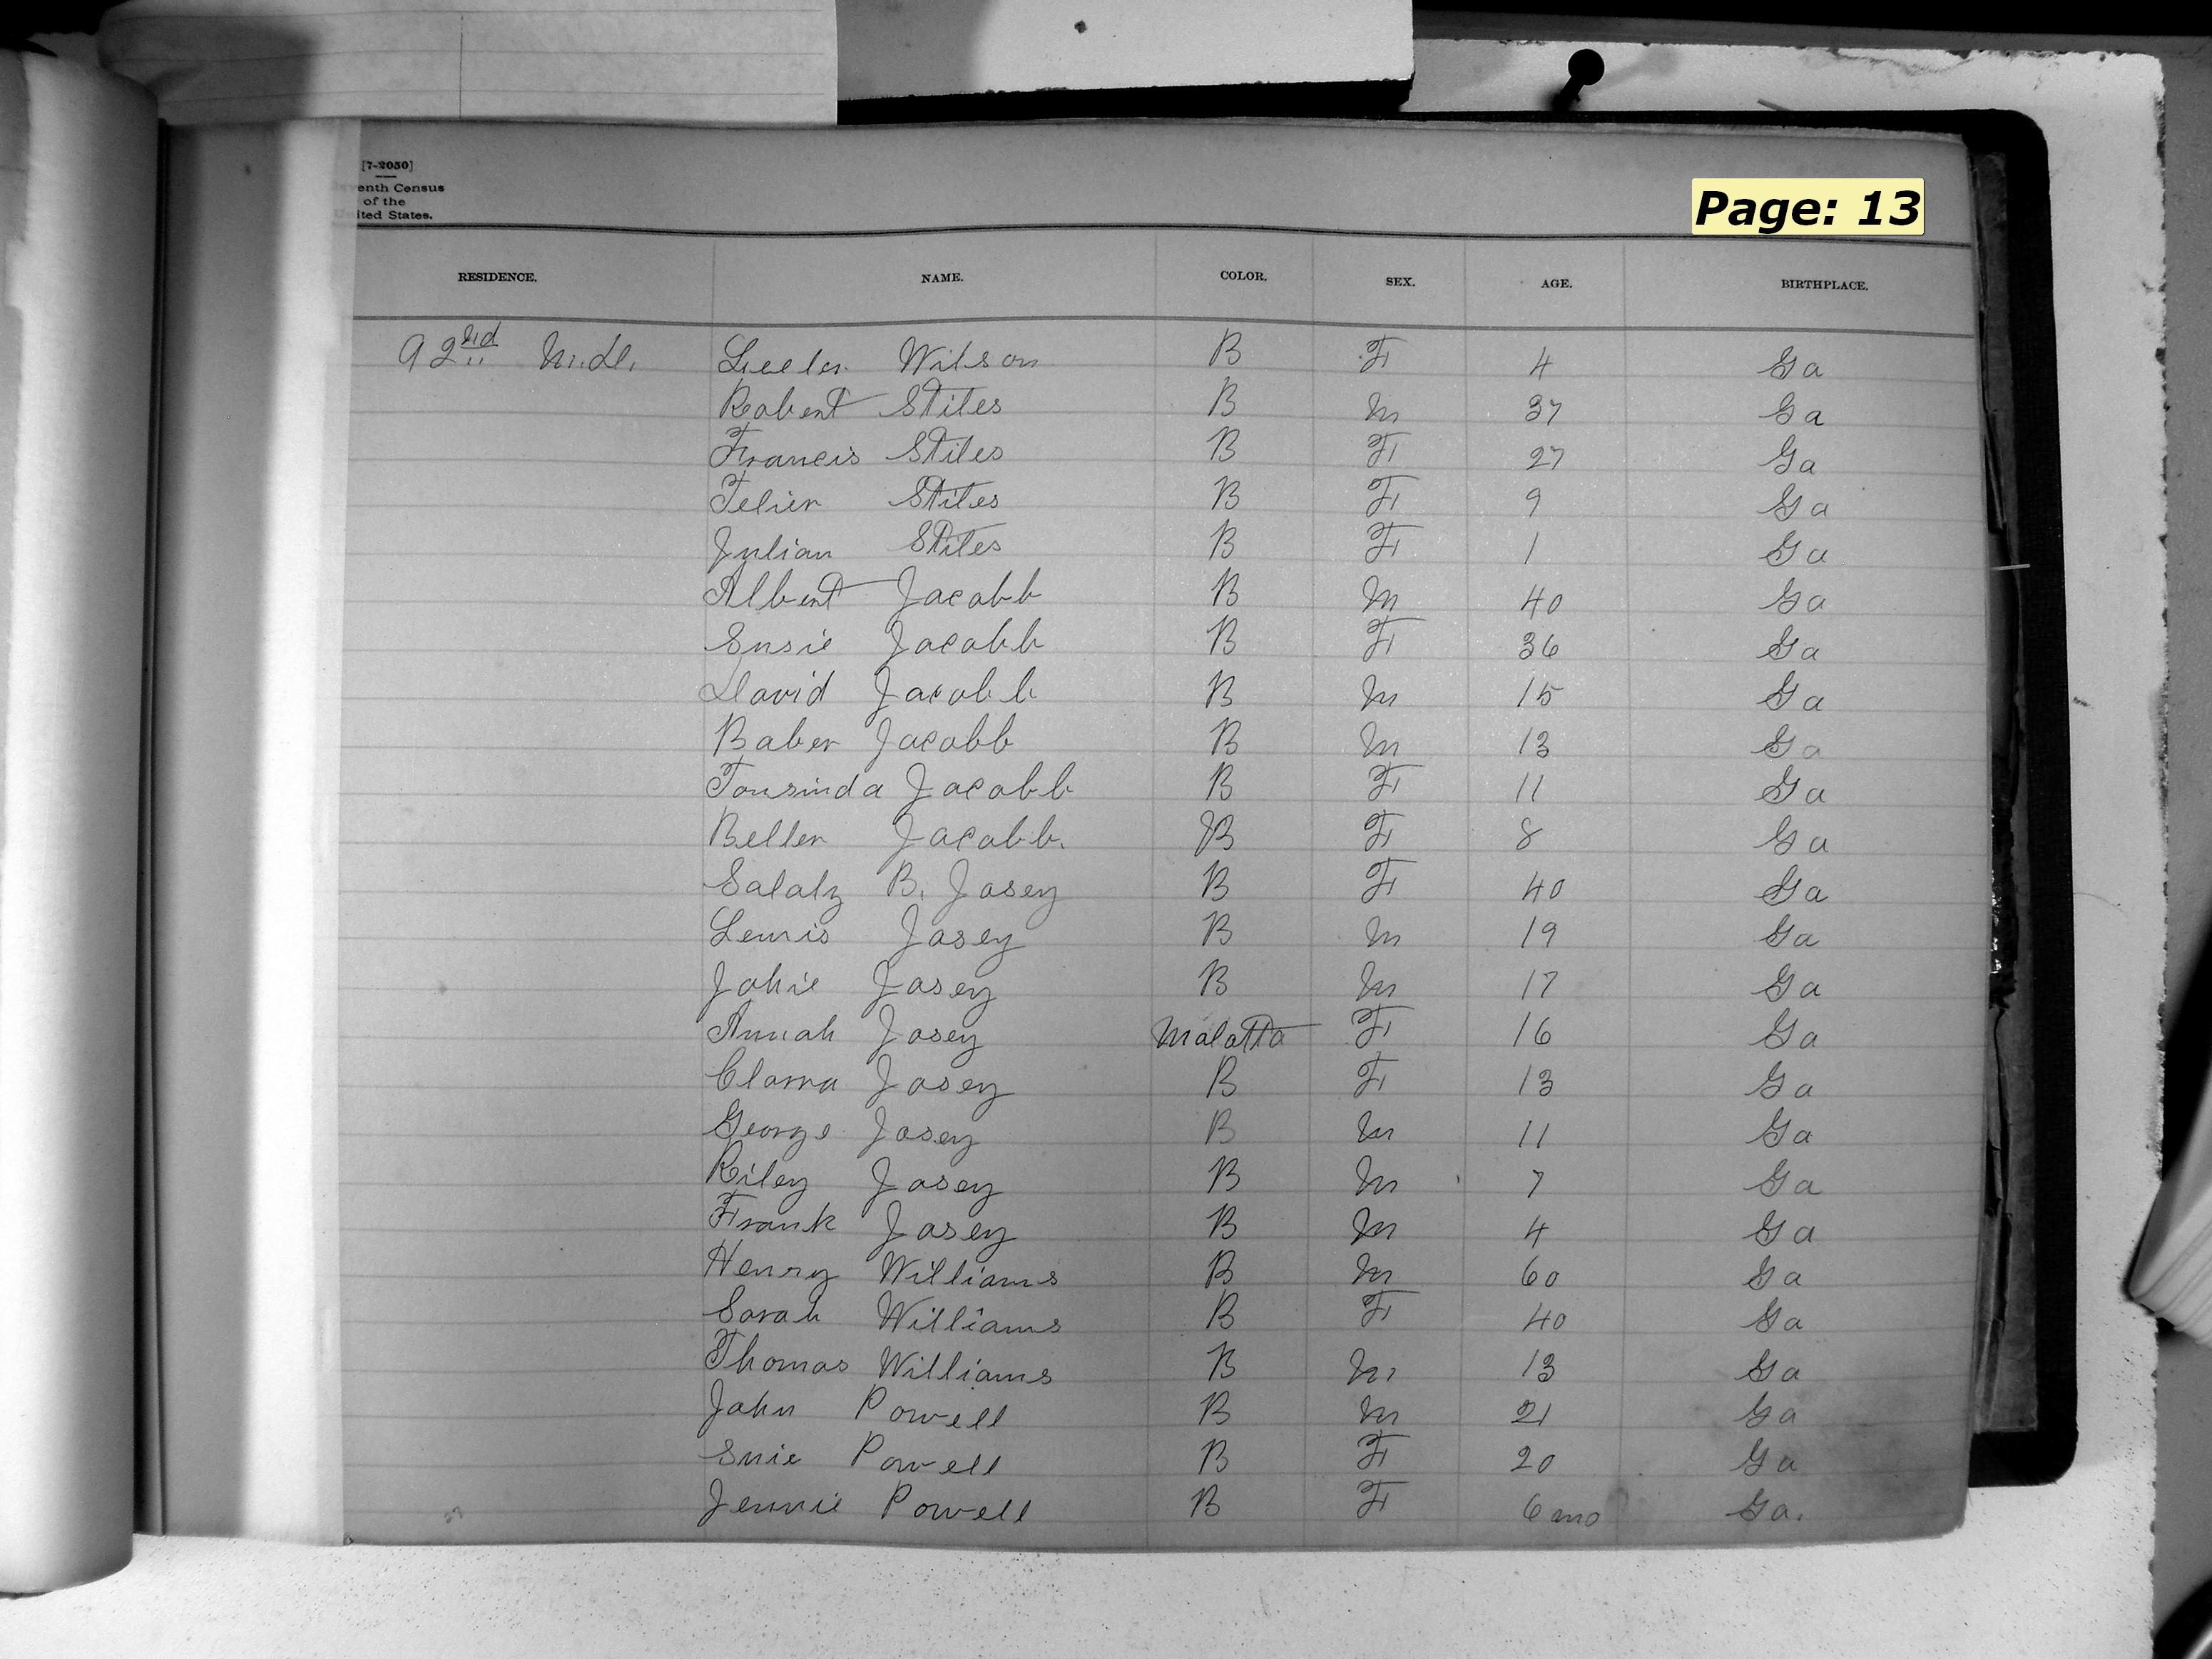 [7-2050]
venth Census
of the
United States.
Page: 13
RESIDENCE. NAME. COLOR. SEX. AGE. BIRTHPLACE.
92nd Wilson B F 4 Ga
Robert Stiles B M 37 Ga
Francis Stiles B F 27 Ga
Stiles B F 9 Ga
Julian Stiles B F 1 Ga
Albert Jacobb B M 40 Ga
Susie Jacobb B F 36 Ga
David Jacobb B M 15 Ga
Baber Jacobb B M 13 Ga
Tousinda Jacobb B F 11 Ga
Beller Jacobb. B F 8 Ga
B. Josey B F 40 Ga
Lewis Josey B M 19 Ga
Johie Josey B M 17 Ga
Annah Josey Malatta F 16 Ga
Clarra Josey B F 13 Ga
George Josey B M 11 Ga
Riley Josey B M 7 Ga
Frank Josey B M 4 Ga
Henry Williams B M 60 Ga
Sarah Williams B F 40 Ga
Thomas Williams B M 13 Ga
John Powell B M 21 Ga
Suie Powell B F 20 Ga
Jennie Powell B F 6 mo Ga.